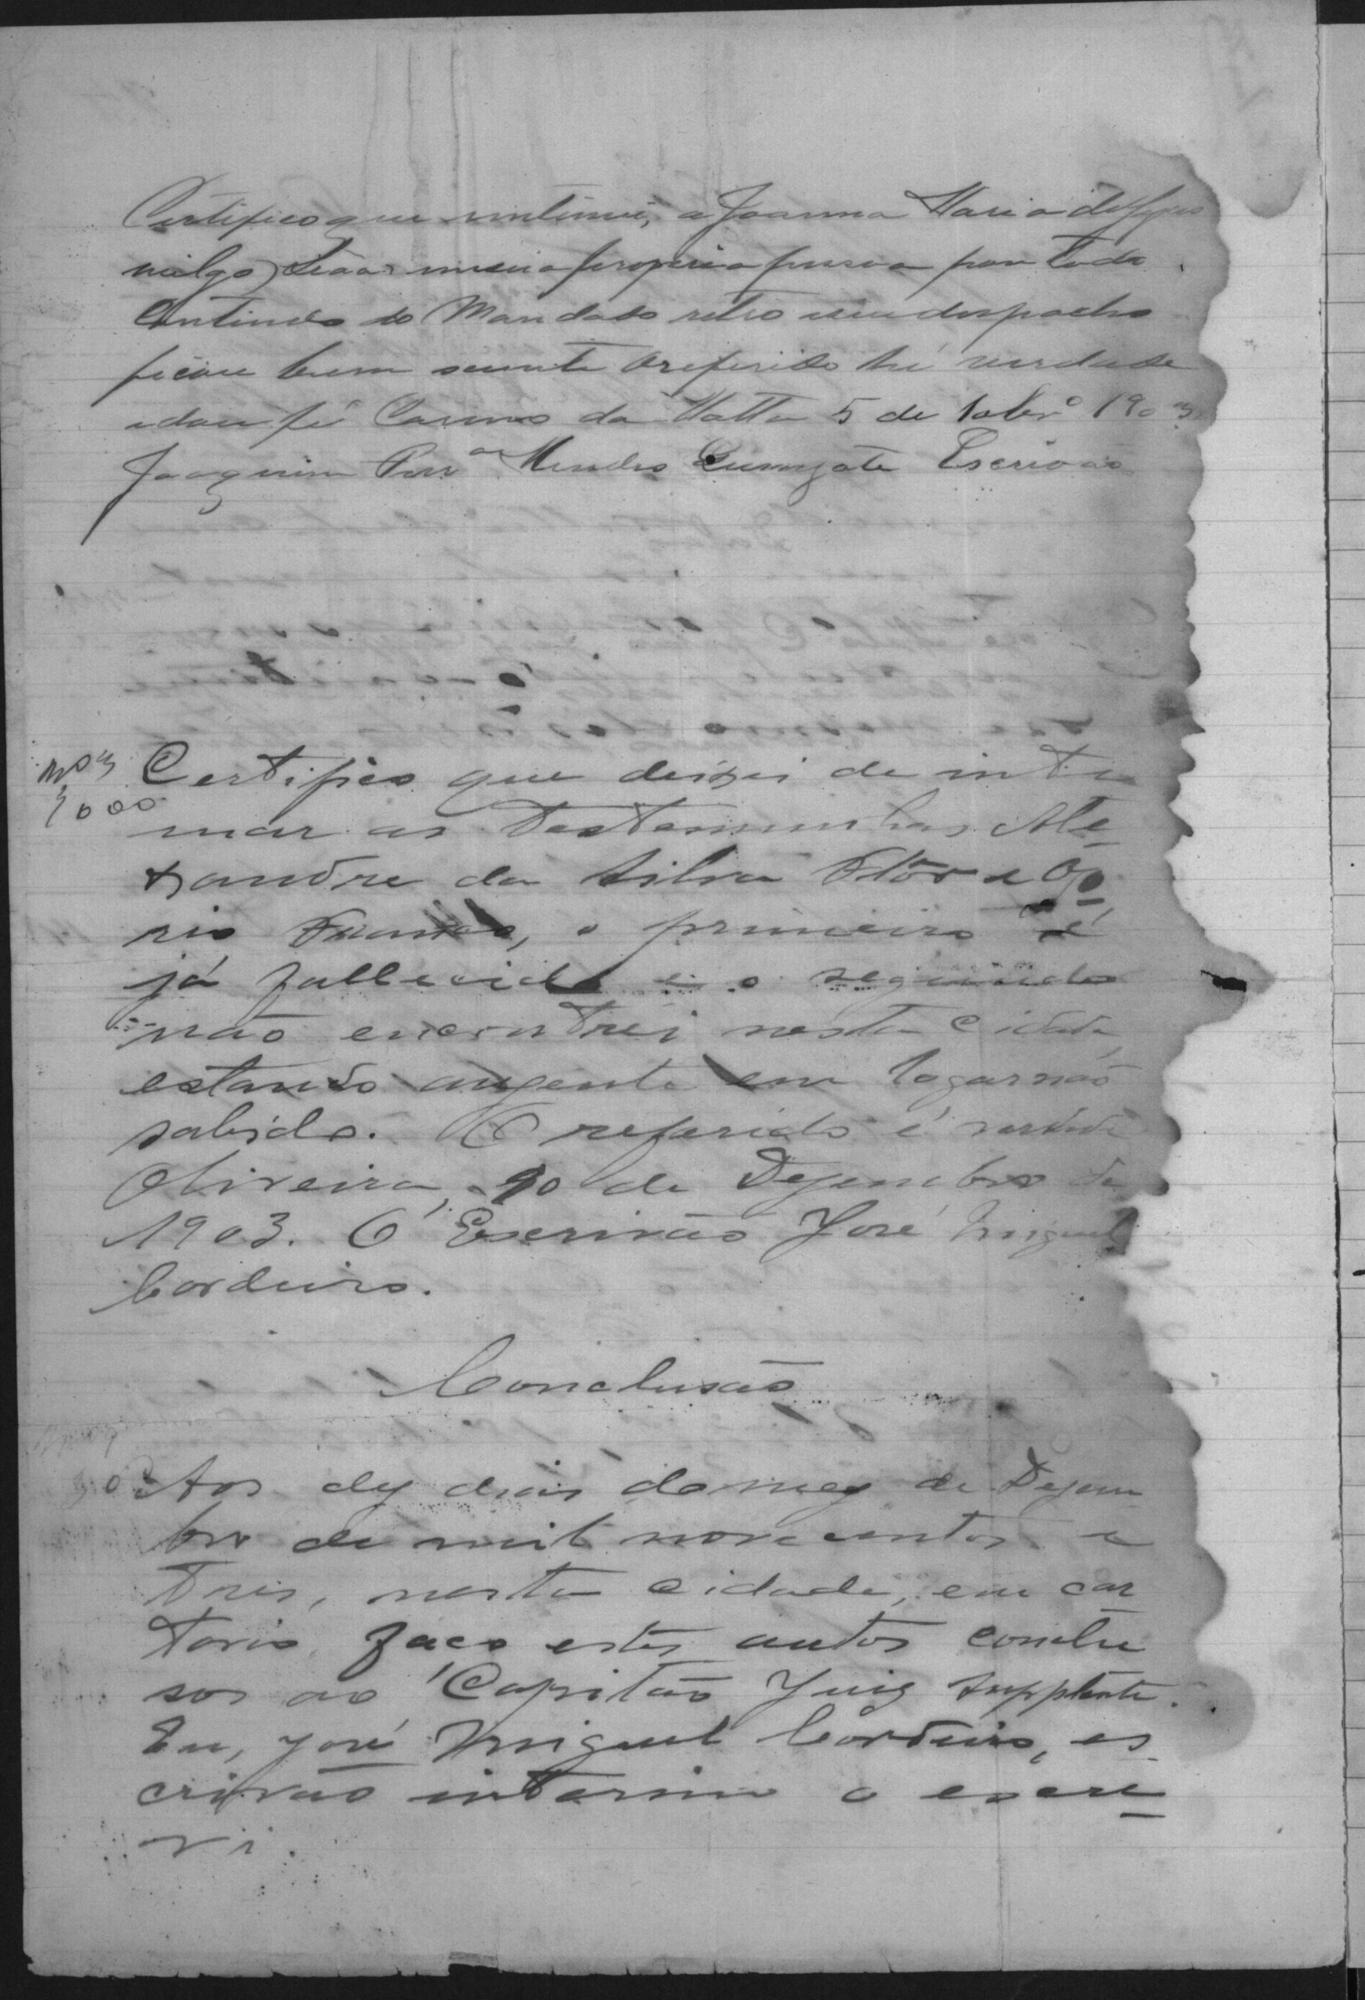 Certifico que intimei, a Joanna Maria de
em sua propria pessoa por todo
Contiudo do Mandado retro e seu despacho
ficou bem sciente O referido hé verdade
e dou fé Carmo da Matta 5 de 10bro 1903
Joaquim Perª Mendes Escrivão
Nº 3
1000
Certifico que deixei de inti
mar as testemunhas Ale
xandre da Silva e Ho
rio o primeiro é
já fallecido e o segundo
não encontrei nesta cidade
estando auzente em logar não
sabido. O referido é verdade
Oliveira, 10 de Dezembro de
1903. O Escrivão José Miguel
Cordeiro.
Conclusão
Aos dez dias do mez de Dezem
bro de mil novecentos e
tres, nesta cidade, em car
torio, faço estes autos conclu
sos ao Capitão Juiz Supplente.
Eu, José Miguel Cordeiro, es
crivão interino o escre
vi.